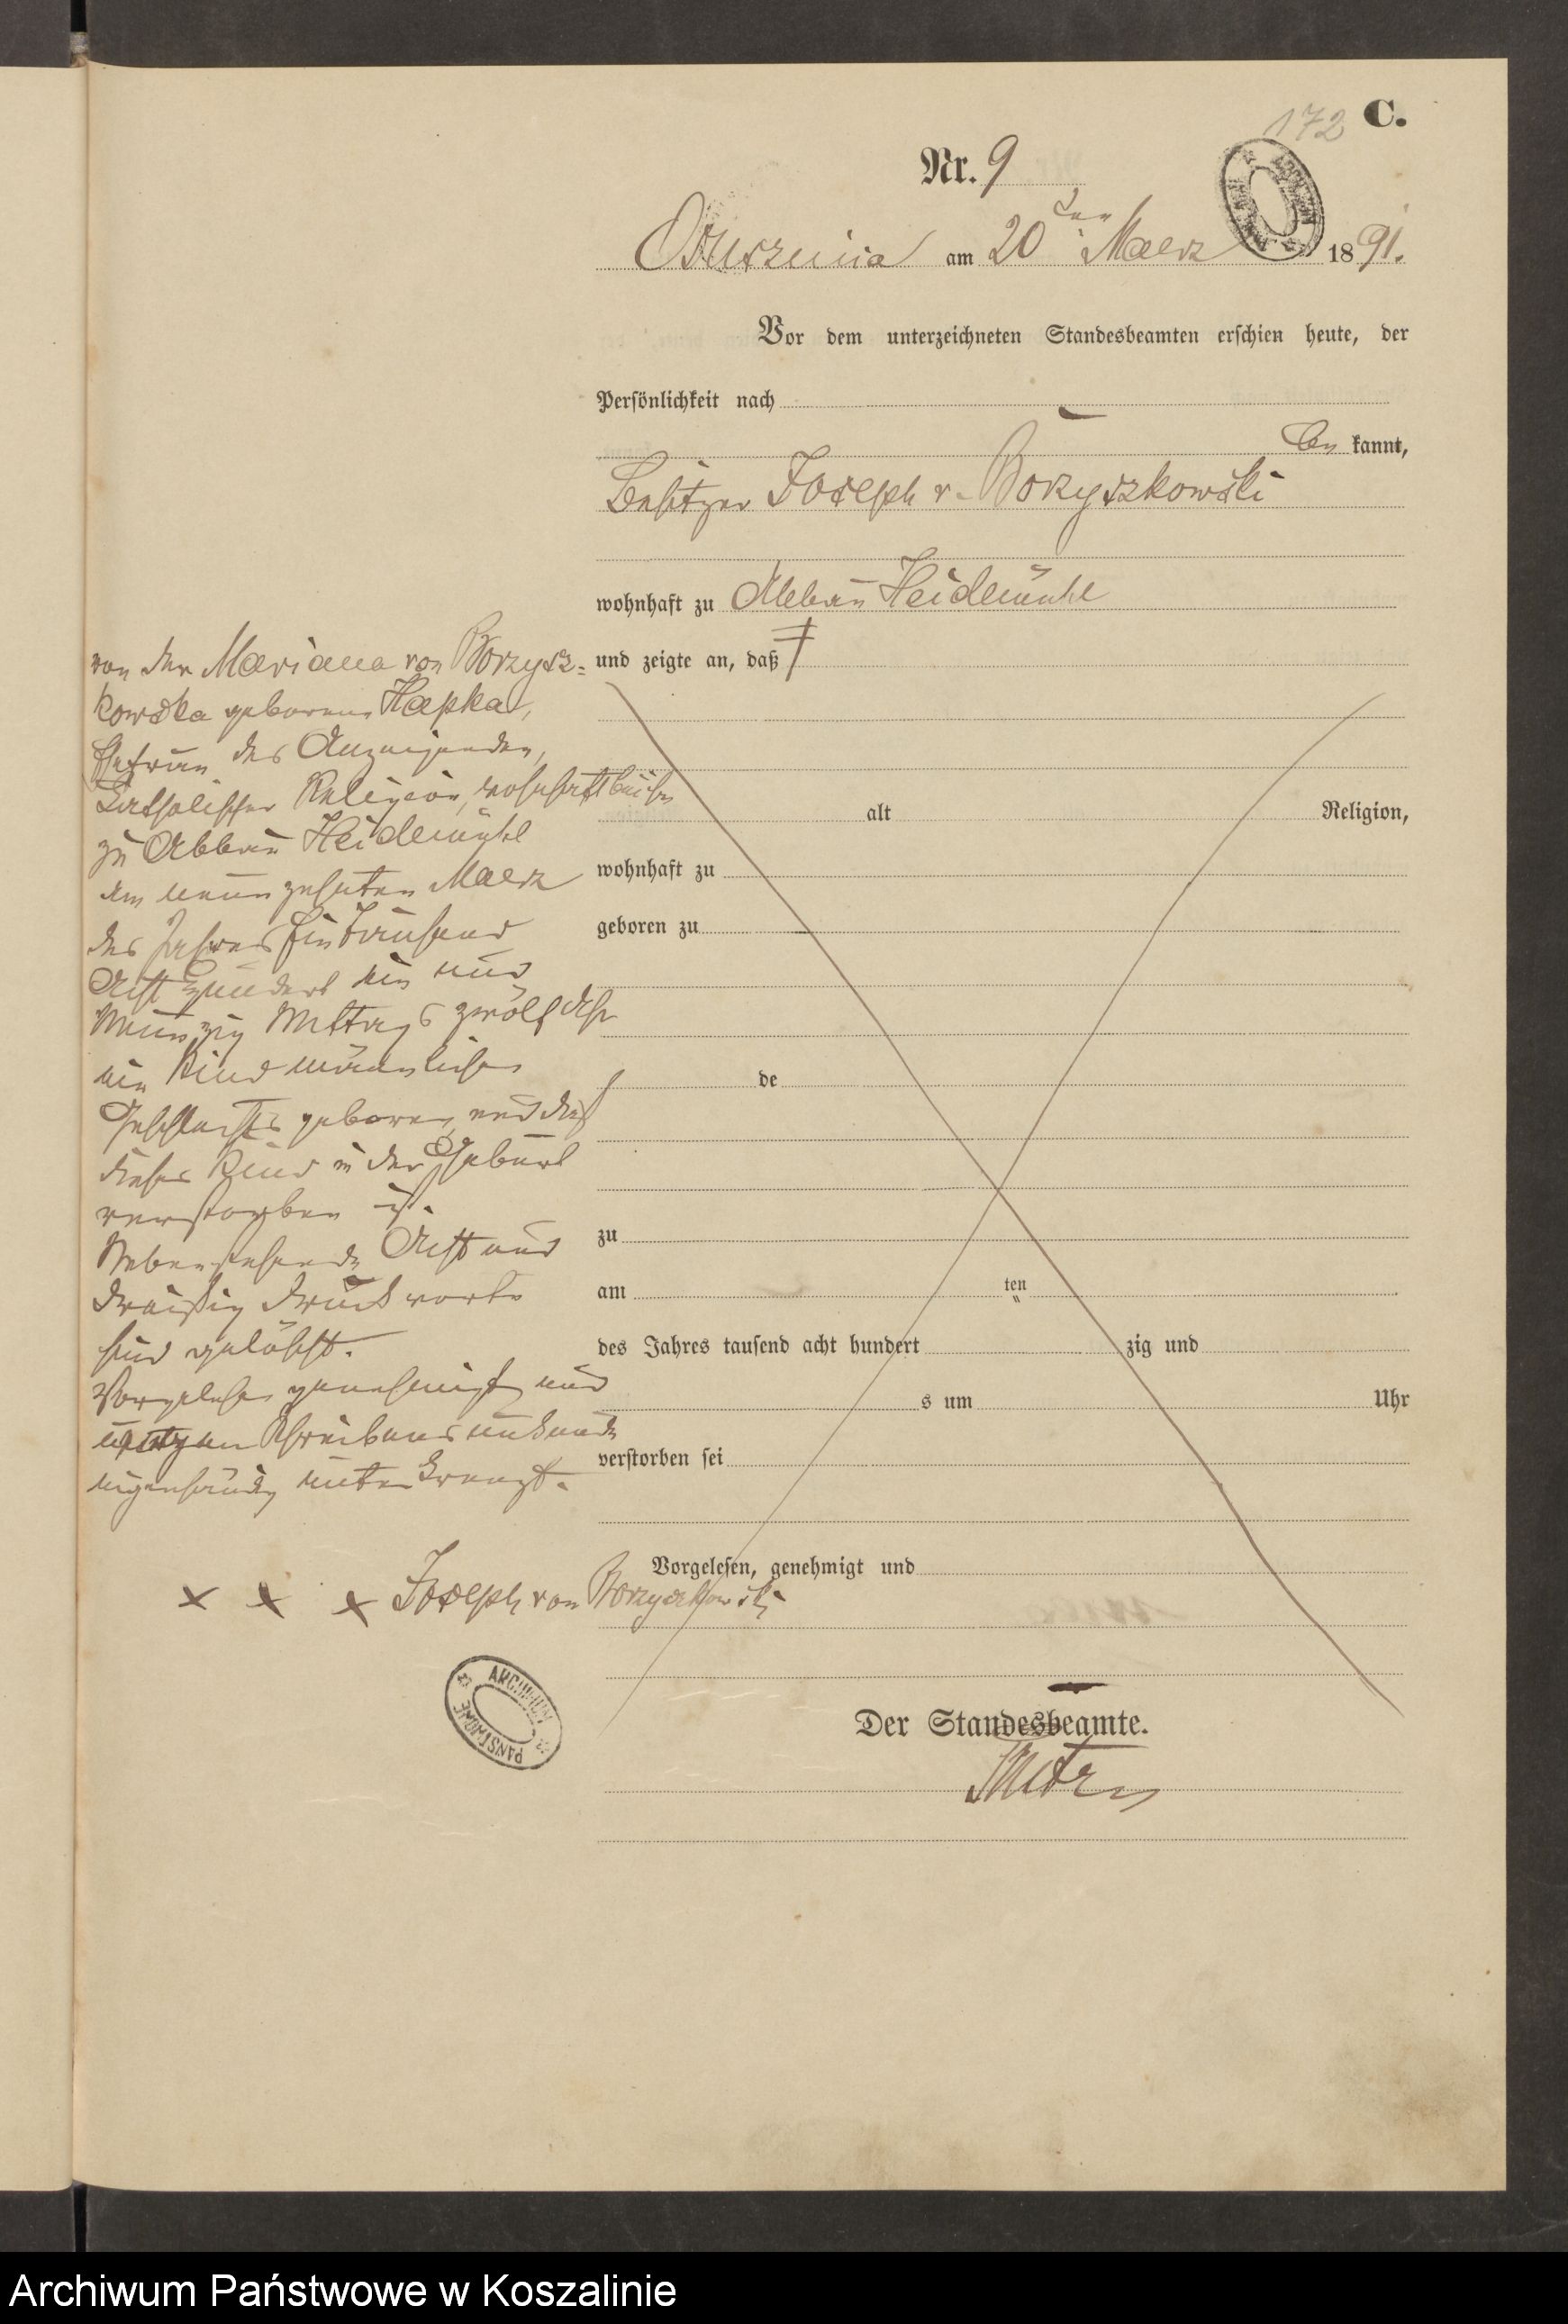 172 C.
Nr. 9
Osuszniza am 20ten Maerz 1891.
Vor dem unterzeichneten Standesbeamten erschien heute, der
Persönlichkeit nach
be kannt,
Besitzer Joseph v. Borzyszkowski
wohnhaft zu Abbau Heidemühl
und zeigte an, daß
von der Mariana von Borzysz-
kowska geborene Hapka,
Ehefrau des Anzeigenden,
katholischer Religion, wohnhaft bei ihm
zu Abbau Heidemühl
am neunzehnten Maerz
des Jahres Eintausend
Acht Hundert ein und
Neunzig Mittags zwölf Uhr
ein Kind männlichen
Geschlechts geboren und daß
dieses Kind in der Geburt
verstorben ist.
Nebenstehende Acht und
dreißig Druckworte
sind gelöscht.
Vorgelesen genehmigt und
wegen Schreibensunkunde
eigenhändig unterkreuzt.
x x x Joseph von Borzyszkowski
alt Religion,
wohnhaft zu
geboren zu
de
zu
am ten
des Jahres tausend acht hundert zig und
s um Uhr
verstorben sei
Vorgelesen, genehmigt und
Der Standesbeamte.
ARCHIWUM PAŃSTWOWE
Archiwum Państwowe w Koszalinie